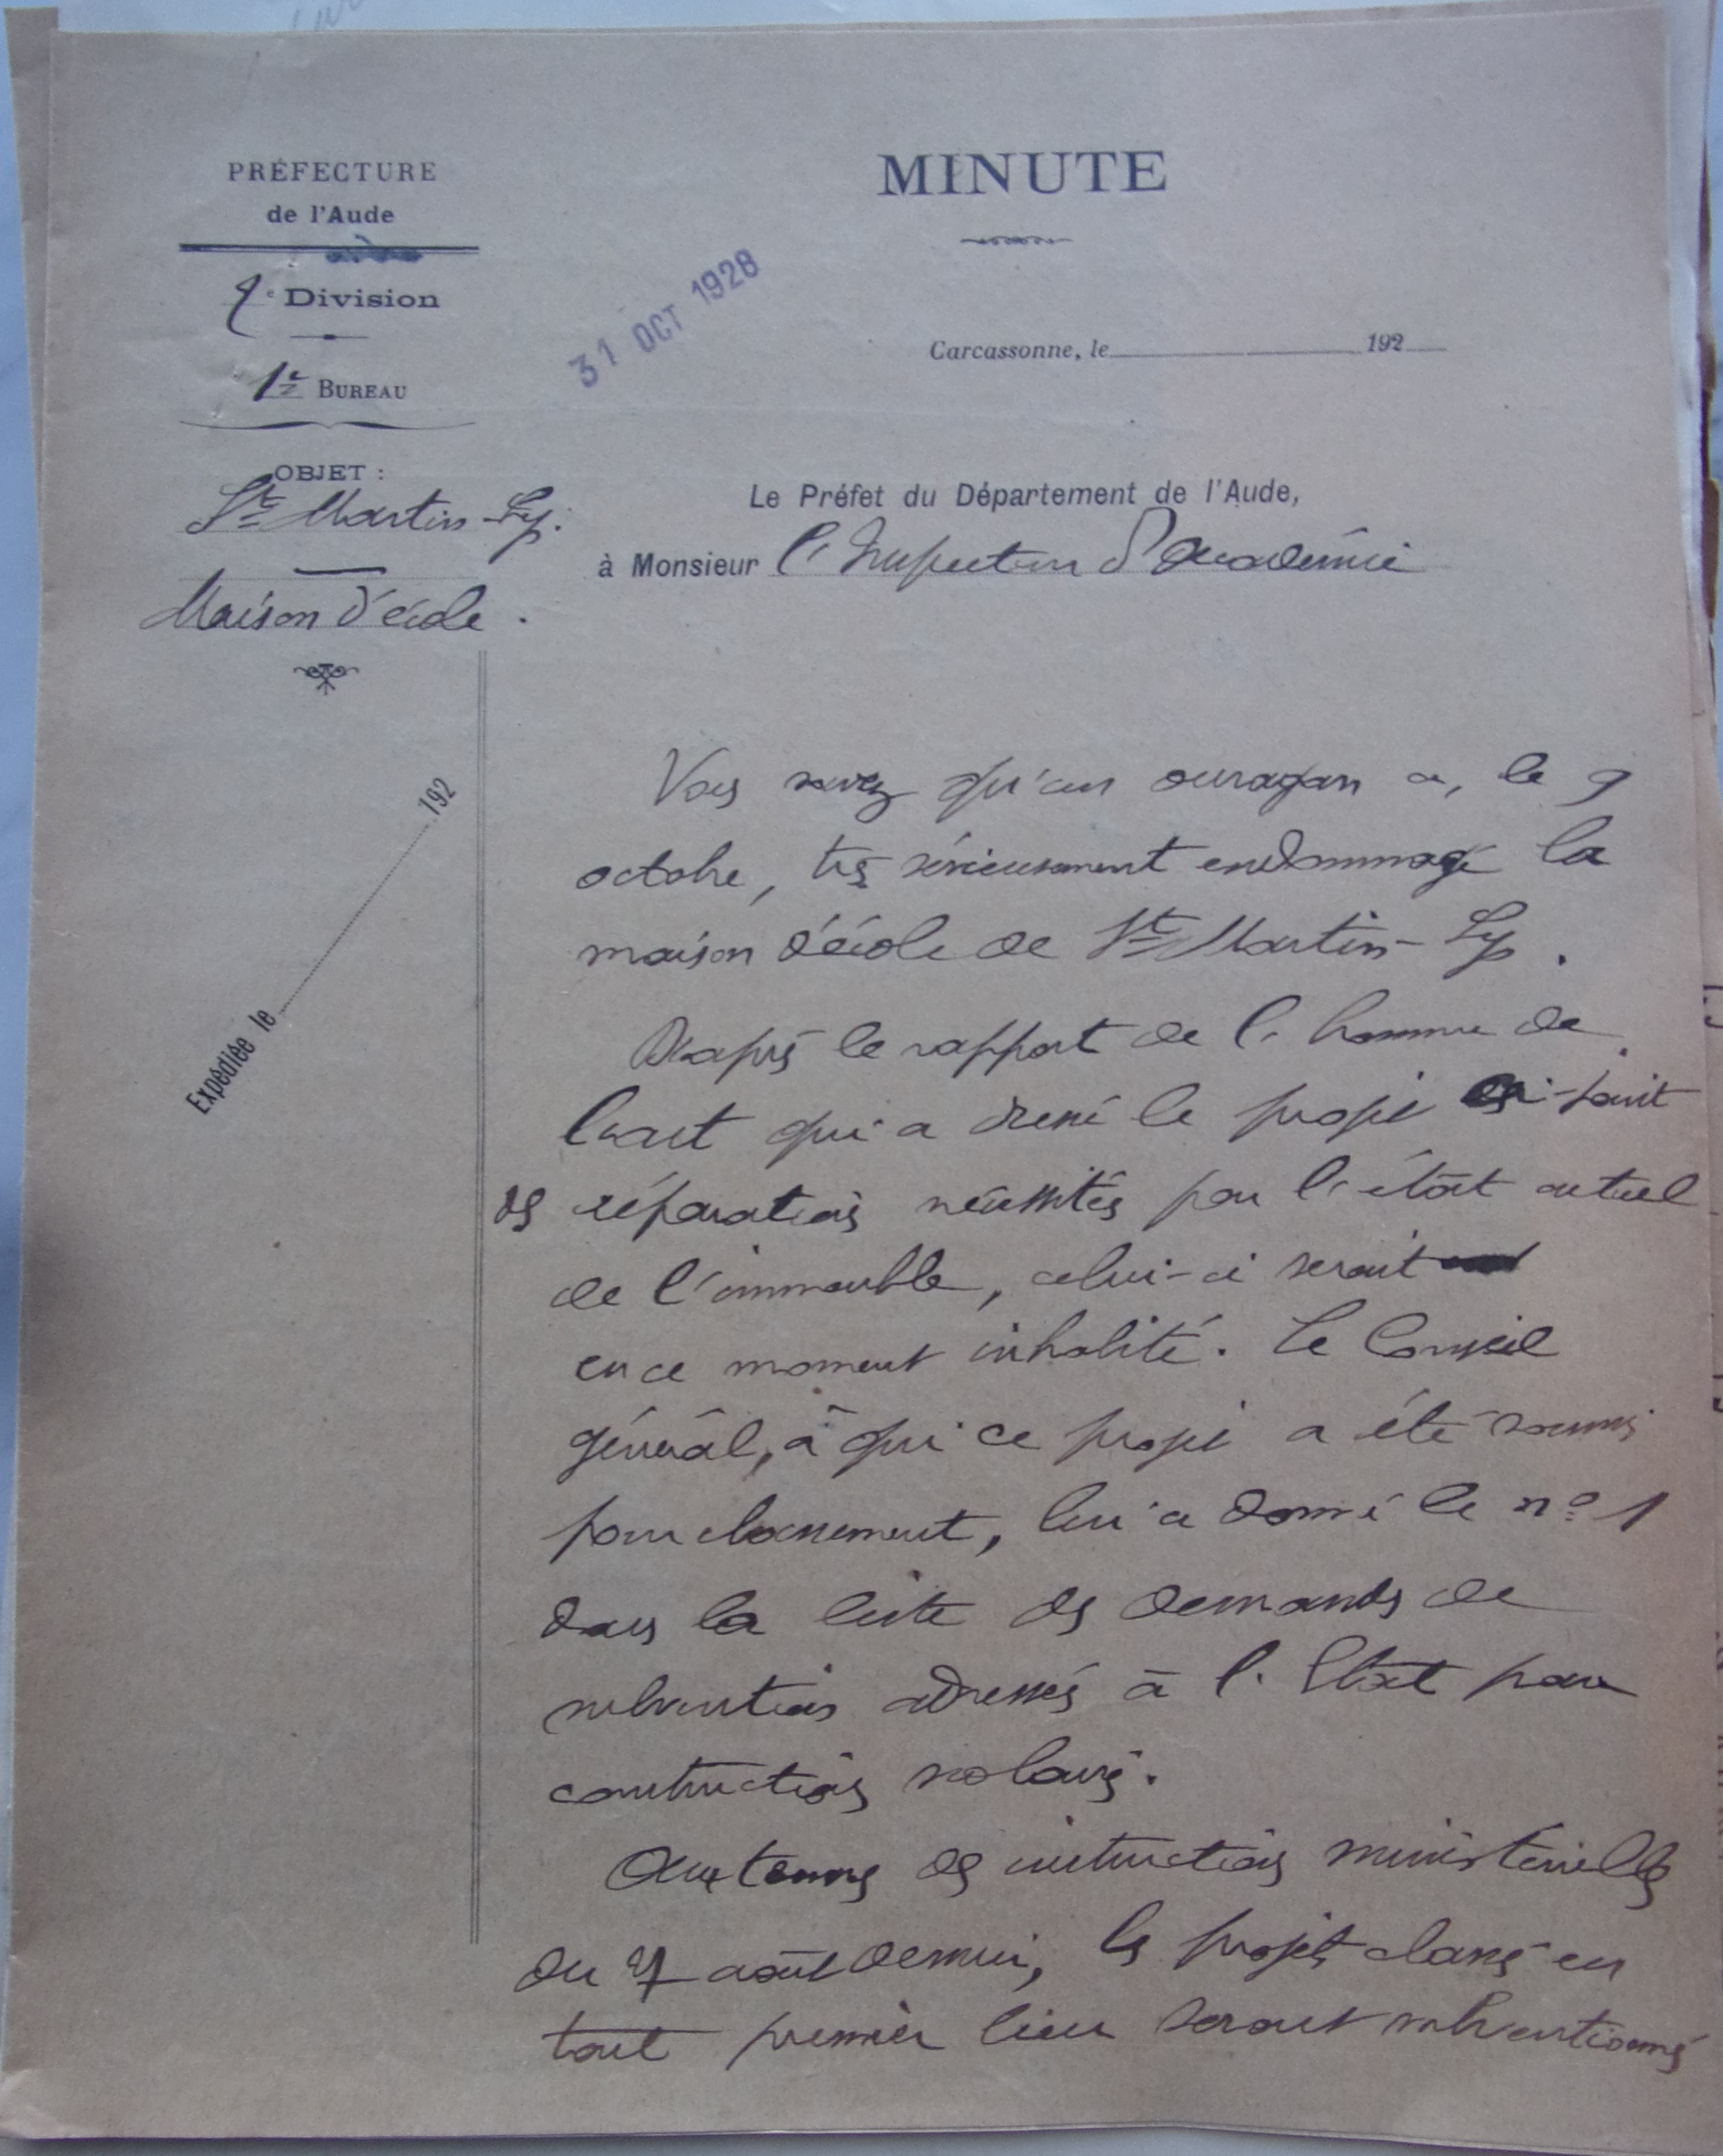 PRÉFECTURE
de l'Aude
2e Division
1er BUREAU
OBJET :
St Martin-Lys.
Maison d'école.
MINUTE
31 OCT 1928
Carcassonne, le 192
Le Préfet du Département de l'Aude,
à Monsieur l'Inspecteur d'Académie
Expédiée le 192
Vous savez qu'un ouragan a, le 9
octobre, très sérieusement endommagé la
maison d'école de St Martin-Lys.
D'après le rapport de l'homme de
l'art qui a dressé le projet ci-joint
des réparations nécessitées par l'état actuel
de l'immeuble, celui-ci serait
en ce moment inhabité. Le Conseil
général, à qui ce projet a été soumis
pour classement, lui a donné le n° 1
dans la liste des demandes de
subventions adressées à l'Etat pour
constructions scolaires.
Aux termes des instructions ministérielles
du août dernier, les projets classés en
tout premier lieu seront subventionnés